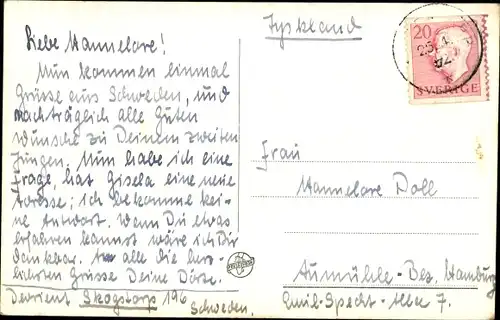 Liebe Hannelore!
Nun kommen einmal
Grüsse aus Schweden, und
nachträglich alle Guten
wünsche zu Deinem zweiten
Jungen. Nun habe ich eine
Frage, hat Gisela eine neue
Adresse; ich bekomme kei-
ne Antwort. Wenn Du etwas
erfahren kannst wäre ich Dir
dankbar. An alle die herz-
lichsten Grüsse Deine
Devrient Skogstorp 196
Schweden.
Tyskland
20
SVERIGE
Frau
Hannelore Doll
Aumühle-Bez. Hamburg
Emil-Specht-Allee 7.